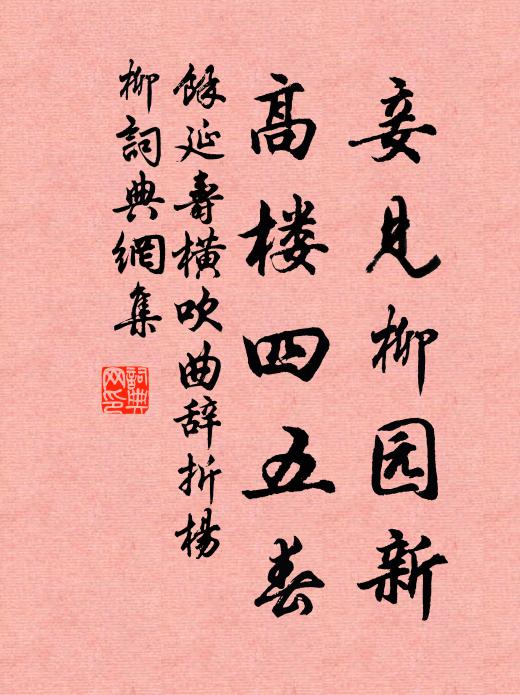 妾見柳园新
高楼四五春
馀延壽橫吹曲辞折楊
柳詞典網集
詞典
网印